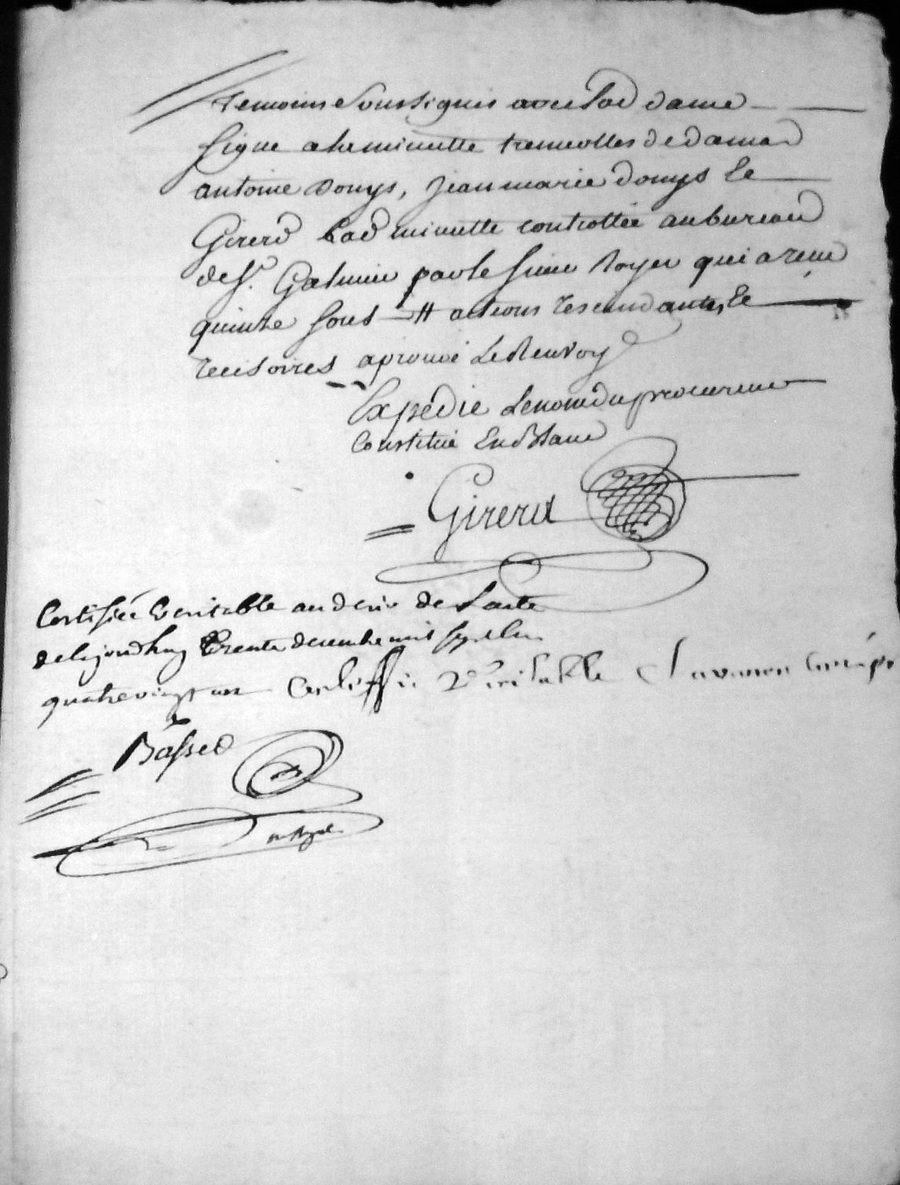 temoins soussignés avec lad dame
signé a la minutte tremeolles de damas
antoine donys, jean marie donys et
Girerd lad minutte controllée au bureau
de St. Galmier par le sieur Royer qui a recu
quinze sous # actions rescindantes, et
recisoires aprouvé le Renvoy
Expedié le nom du procureur
Constitué En Blanc
Girerd
Certifiée veritable au desir de l'acte
de cejourdhuy trente decembre mil sept cens
quatrevingt un Certiffié Veritable
Basset